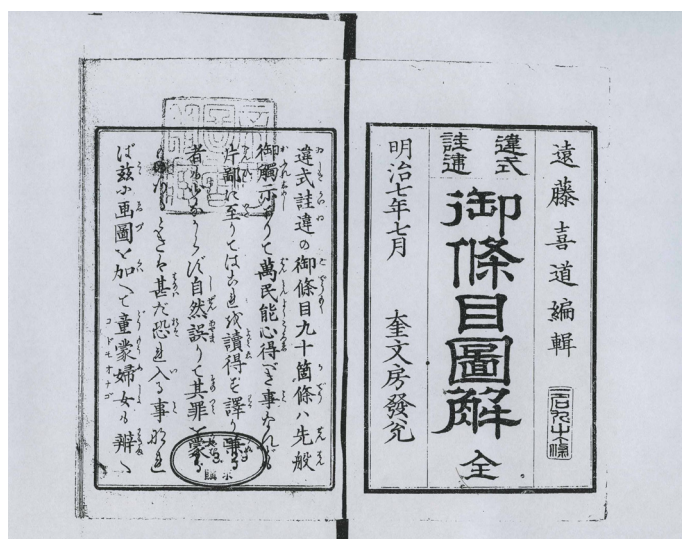 遠藤喜道編輯
違式
詿違
御條目圖解 全
明治七年七月 奎文房發兌
違式詿違の御條目九十箇條ハ先般
御觸示ありて萬民能心得べき事なれども
片鄙に至りてはこれを讀得ず譯
者も少なからず自然誤りて其罪を蒙
甚だ恐れ入る事なれ
ば茲に画圖を加へて童蒙婦女も辨へ